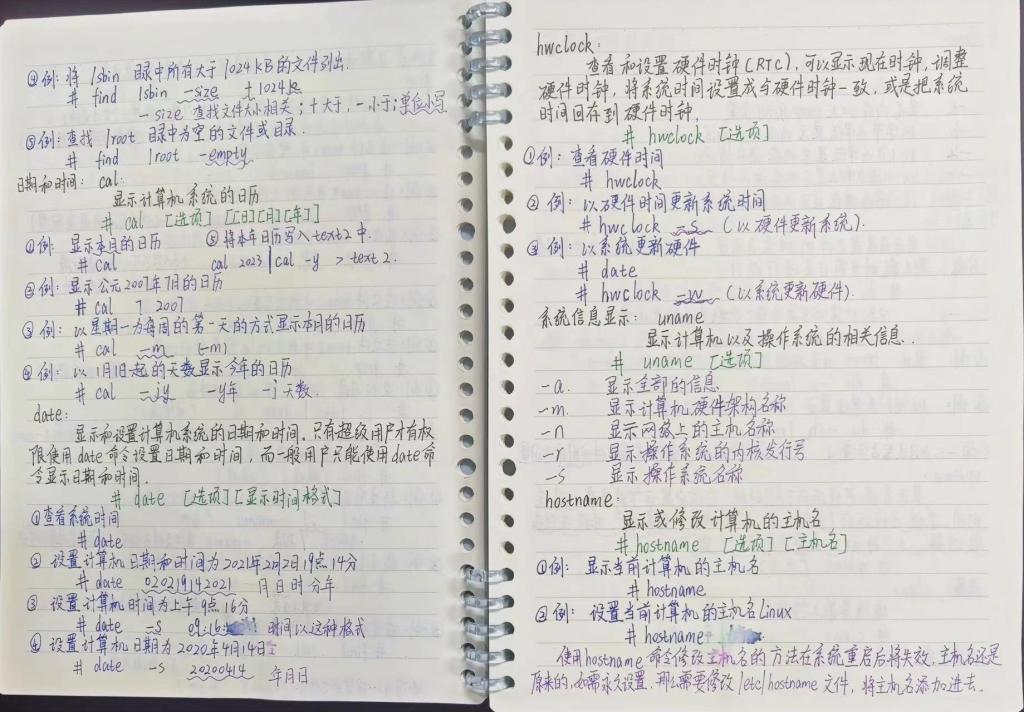 ④例:将 /sbin 目录中所有大于1024KB的文件列出.
# find /sbin -size +1024k
-size 查找文件大小相关;+大于,-小于;单位小写
⑤例:查找 /root 目录中为空的文件或目录.
# find /root -empty
日期和时间: cal:
显示计算机系统的日历
# cal [选项] [[日][月][年]]
①例: 显示本月的日历 ⑤将本年日历写入text2中.
# cal cal 2023 | cal -y > text2.
②例: 显示公元2007年7月的日历
# cal 7 2007
③例: 以星期一为每周的第一天的方式显示本月的日历
# cal -m (-m)
④例: 以1月1日起的天数显示今年的日历
# cal -jy -y年 -j天数.
date:
显示和设置计算机系统的日期和时间.只有超级用户才有权
限使用date命令设置日期和时间,而一般用户只能使用date命
令显示日期和时间.
# date [选项][显示时间格式]
①查看系统时间
# date
② 设置计算机日期和时间为2021年2月2日19点14分
# date 020219142021 月日时分年
③ 设置计算机时间为上午9点16分
# date -s 09:16: 时间以这种格式
④ 设置计算机日期为2020年4月14日
# date -s 20200414 年月日
hwclock:
查看和设置硬件时钟(RTC),可以显示现在时钟,调整
硬件时钟,将系统时间设置成与硬件时钟一致,或是把系统
时间回存到硬件时钟.
# hwclock [选项]
①例: 查看硬件时间
# hwclock
② 例: 以硬件时间更新系统时间
# hwclock -s (以硬件更新系统).
③ 例: 以系统更新硬件
# date
# hwclock -w (以系统更新硬件).
系统信息显示: uname
显示计算机以及操作系统的相关信息.
# uname [选项]
-a. 显示全部的信息
-m. 显示计算机硬件架构名称
-n 显示网络上的主机名称
-r 显示操作系统的内核发行号
-s 显示操作系统名称
hostname:
显示或修改计算机的主机名
# hostname [选项] [主机名]
①例: 显示当前计算机的主机名
# hostname
② 例: 设置当前计算机的主机名Linux
# hostname
使用hostname命令修改主机名的方法在系统重启后将失效,主机名还是
原来的,如需永久设置.那么需要修改/etc/hostname文件,将主机名添加进去.